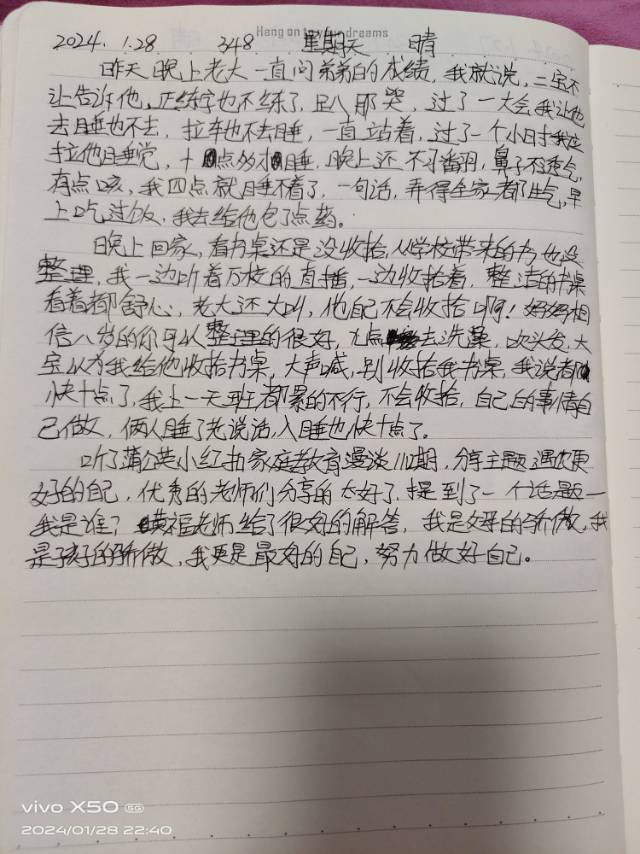 Hang on to your dreams
2024.1.28 348 星期天 晴
昨天晚上老大一直问弟弟的成绩,我就说,二宝不
让告诉他,正练字也不练了,趴那哭,过了一大会我让他
去睡也不去,拉车也不去睡,一直站着,过了一个小时我在
拉他睡觉,十点多才睡,晚上还不习翻,鼻子不透气,
有点咳,我四点就睡不着了,一句话,弄得全家都生气,早
上吃过饭,我去给他包了点药。
晚上回家,看书桌还是没收拾,从学校带来的书也没
整理,我一边听着万校的直播,一边收拾着,整洁的书桌
看着都舒心,老大还大叫,他自己不会收拾啊!妈妈相
信八岁的你可以整理的很好,九点去洗澡,吹头发,大
宝以为我给他收拾书桌,大声喊,别收拾我书桌,我说都
快十点了,我上一天班都累的不行,不会收拾,自己的事情自
己做,俩人睡了老说话,入睡也快十点了。
听了蒲公英小红拍家庭教育漫谈 期,分享主题遇见更
好的自己,优秀的老师们分享的太好了,提到了一个话题一
我是谁?福老师给了很好的解答,我是父母的骄傲,我
是孩子的骄傲,我更是最好的自己,努力做好自己。
vivo X50 5G
2024/01/28 22:40